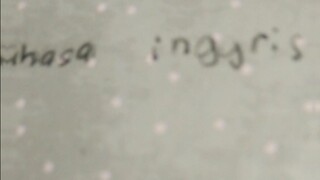 ahasa inggris